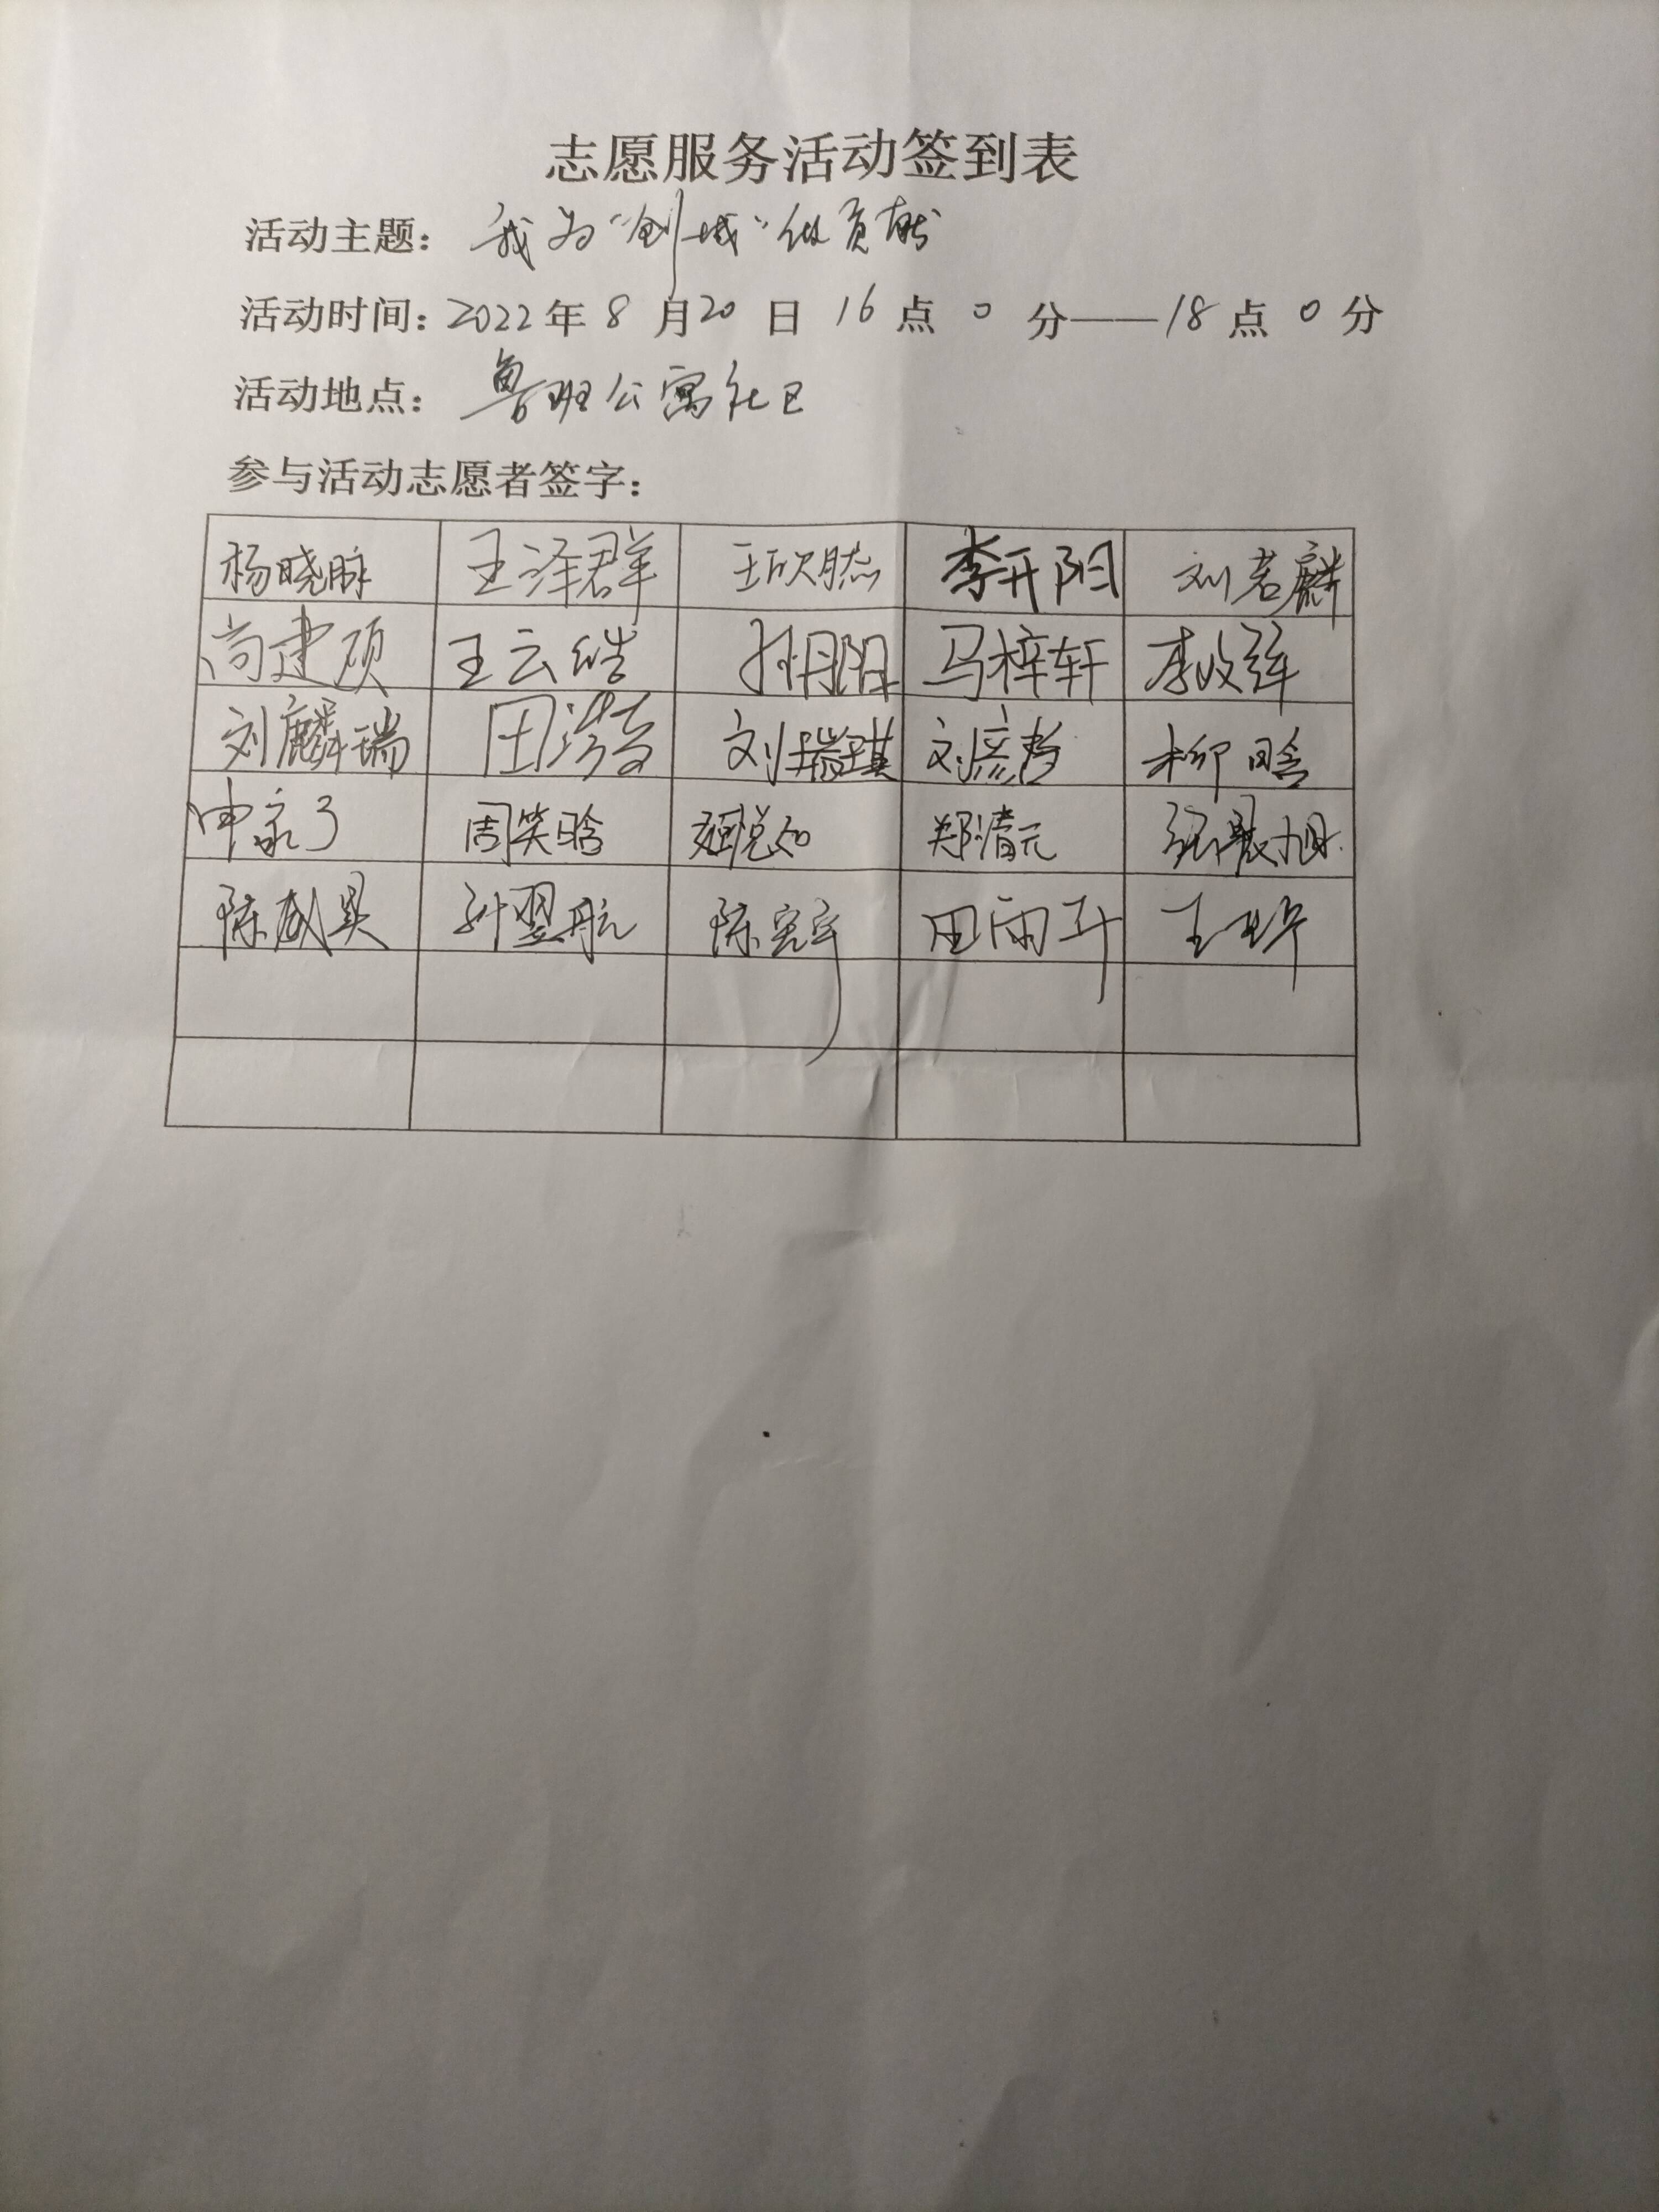 志愿服务活动签到表
活动主题：我为“创城”做贡献
活动时间：2022年8月20日16点0分——18点0分
活动地点：鲁班公寓社区
参与活动志愿者签字：
杨晓脉 王泽群 王欣然 李开阳 刘若麟
尚建硕 王云皓 孙月阳 马梓轩 李
刘麟瑞 田浩 刘瑞琪 刘彦 柳晗
申 周笑晗 悦如 郑清元 张晨旭
陈威昊 孙翌航 陈宪宇 田雨 王